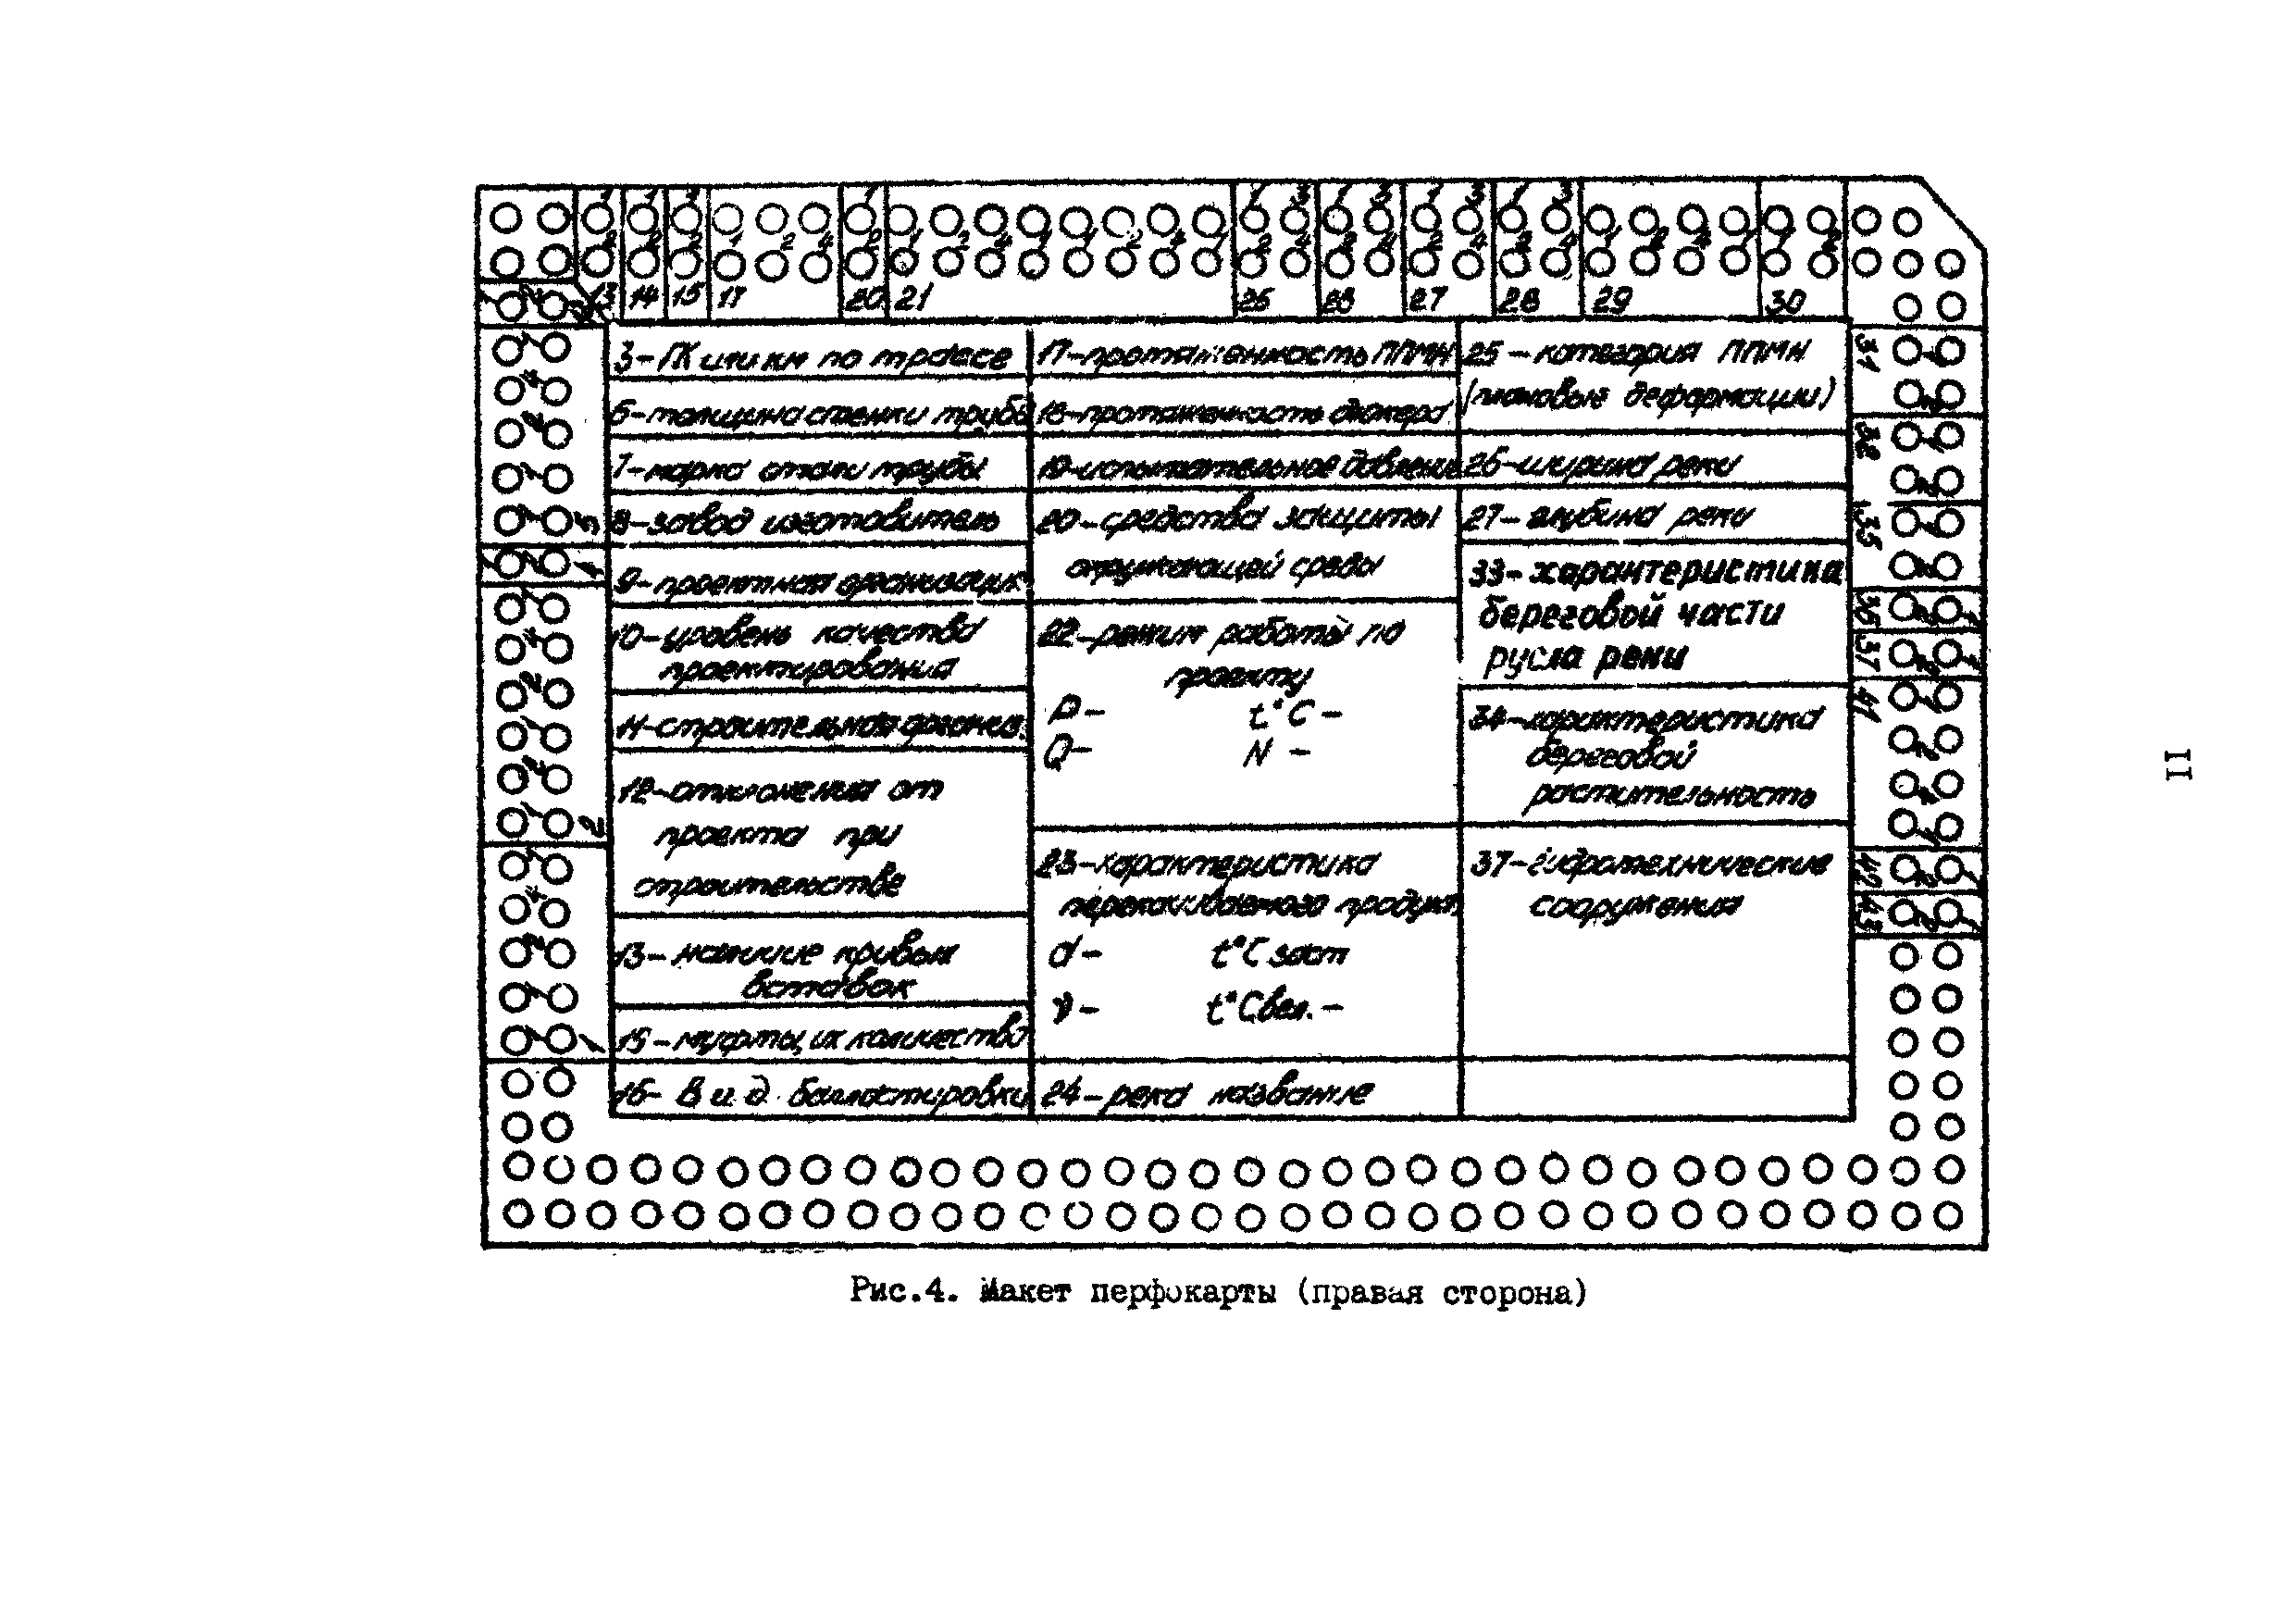 13 14 15 17 20 21 25 26 27 28 29 30
3 - ПК или км по трассе
6 - толщина стенки трубы
7 - марка стали трубы
8 - завод изготовитель
9 - проектная организация
10 - уровень качества
проектирования
11 - строительная организ.
12 - отклонения от
проекта при
строительстве
13 - наличие кривых
вставок
15 - муфты, их количество
16 - Вид балластировки
17 - протяженность ППМН
18 - протяженность дюкера
19 - испытательное давление
20 - средства защиты
окружающей среды
22 - режим работы по
проекту
P - t°C -
Q - N -
23 - характеристика
перекачиваемого продукта
d - t°C заст
ν - t°C всп. -
24 - река название
25 - категория ППМН
(плановые деформации)
26 - ширина реки
27 - глубина реки
33 - характеристика
береговой части
русла реки
34 - характеристика
береговой
растительность
37 - гидротехнические
сооружения
31
32
35
36
37
41
42
43
5
4
2
1
Рис.4. Макет перфокарты (правая сторона)
II